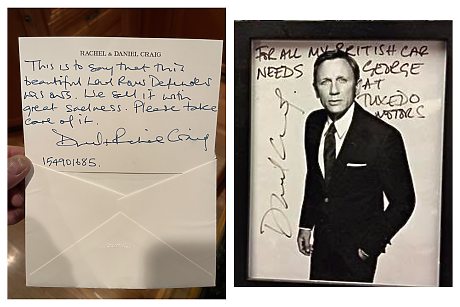 RACHEL & DANIEL CRAIG
This is to say that this
beautiful Land Rover Defender
was ours. We sell it with
great sadness. Please take
care of it.
Daniel + Rachel Craig
154901685.
FOR ALL MY BRITISH CAR
NEEDS GEORGE
AT
TUXEDO
MOTORS
Daniel Craig